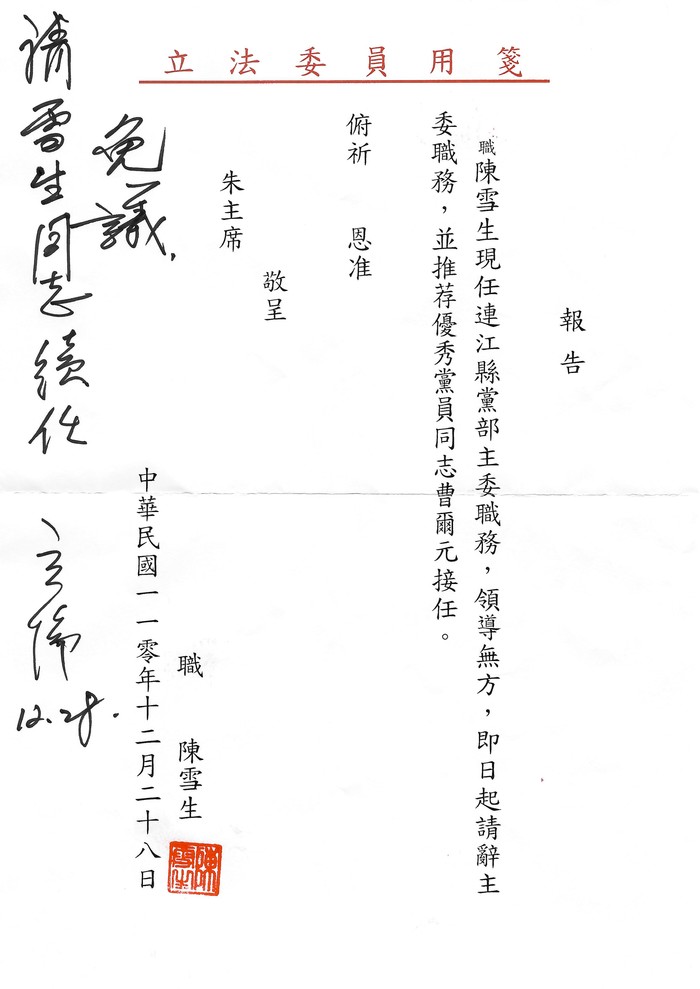 立法委員用箋
報告
職陳雪生現任連江縣黨部主委職務，領導無方，即日起請辭主
委職務，並推荐優秀黨員同志曹爾元接任。
俯祈 恩准
敬呈
朱主席
職 陳雪生
陳雪生
中華民國一一零年十二月二十八日
免議，
請雪生同志續任
立倫
12.28.